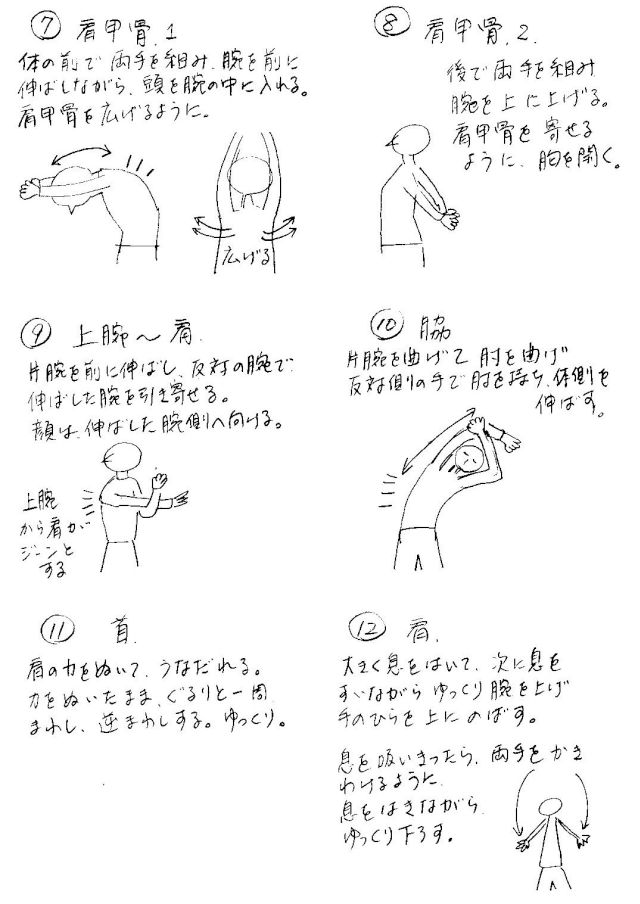 ⑦ 肩甲骨.1
体の前で両手を組み、腕を前に
伸ばしながら、頭を腕の中に入れる。
肩甲骨を広げるように。
広げる
⑧ 肩甲骨.2.
後で両手を組み
腕を上に上げる。
肩甲骨を寄せる
ように、胸を開く。
⑨ 上腕～肩.
片腕を前に伸ばし、反対の腕で
伸ばした腕を引き寄せる。
顔は、伸ばした腕側へ向ける。
上腕
から肩が
ジーンと
する
⑩ 脇
片腕を曲げて肘を曲げ
反対側の手で肘を持ち、体側を
伸ばす。
⑪ 首.
肩の力をぬいて、うなだれる。
力をぬいたまま、ぐるりと一周
まわし、逆まわしする。ゆっくり。
⑫ 肩.
大きく息をはいて、次に息を
すいながらゆっくり腕を上げ
手のひらを上にのばす。
息を吸いきったら、両手をかき
わけるように、
息をはきながら、
ゆっくり下ろす。